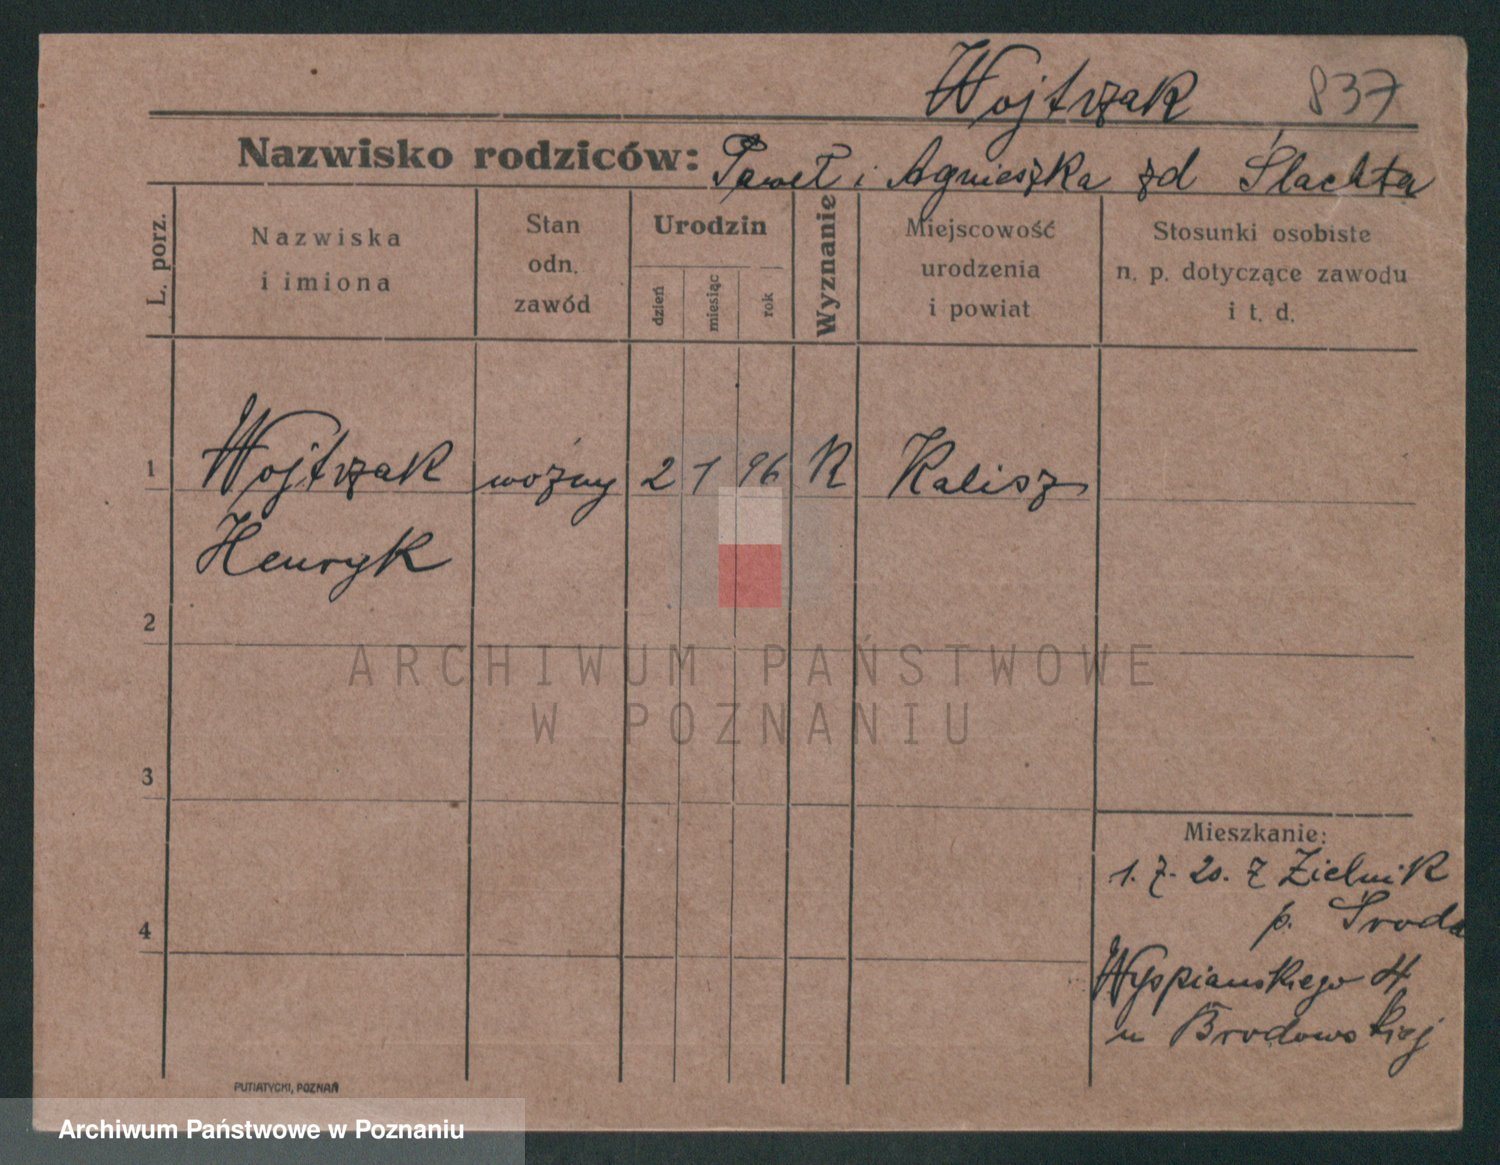 Wojtrzak 837
Nazwisko rodziców: Paweł i Agnieszka zd Ślachta
L. porz.
Nazwiska
i imiona
Stan
odn.
zawód
Urodzin
dzień
miesiąc
rok
Wyznanie
Miejscowość
urodzenia
i powiat
Stosunki osobiste
n. p. dotyczące zawodu
i t. d.
1 Wojtrzak woźny 2 1 96 R Kalisz
Henryk
2
ARCHIWUM PAŃSTWOWE
W POZNANIU
3
Mieszkanie:
1. 7. 20. z Zielnik
p. Środa
4
Wyspiańskiego 4
u Brodowskiej
PUTIATYCKI, POZNAŃ
Archiwum Państwowe w Poznaniu